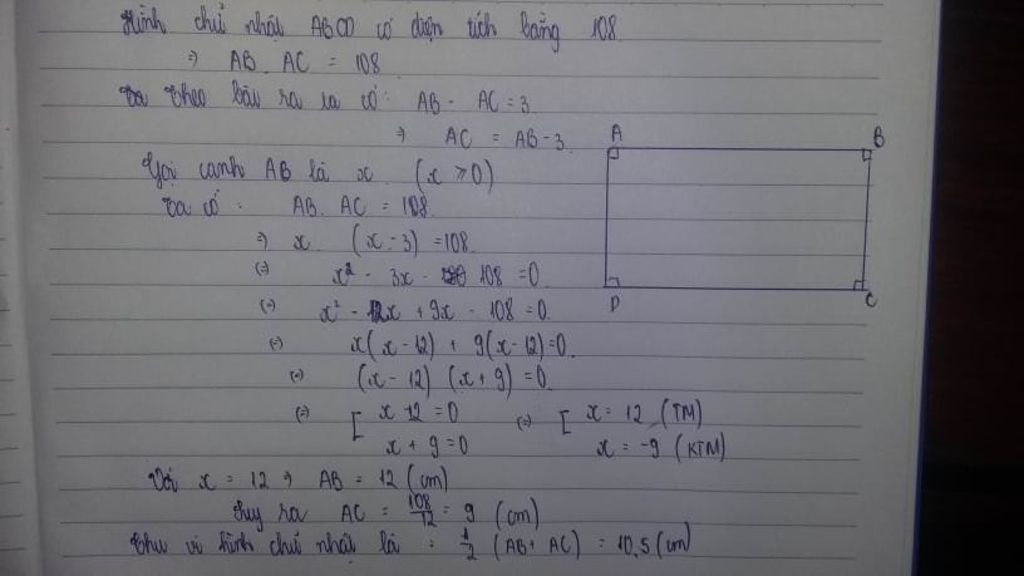 Hình chữ nhật ABCD có diện tích bằng 108
=) AB . AC = 108
Ta theo bài ra ta có: AB - AC = 3
=) AC = AB - 3
Gọi cạnh AB là x (x > 0)
Ta có: AB. AC = 108
=) x (x - 3) = 108
(=) x² - 3x - 108 = 0
(=) x² - 12x + 9x - 108 = 0
(=) x(x - 12) + 9(x - 12) = 0
(=) (x - 12) (x + 9) = 0
(=) [ x - 12 = 0 (=) [ x = 12 (TM)
x + 9 = 0 x = -9 (KTM)
Với x = 12 => AB = 12 (cm)
Suy ra AC = 108/12 = 9 (cm)
Chu vi hình chữ nhật là : 1/2 (AB + AC) = 10,5 (cm)
A
B
D
C